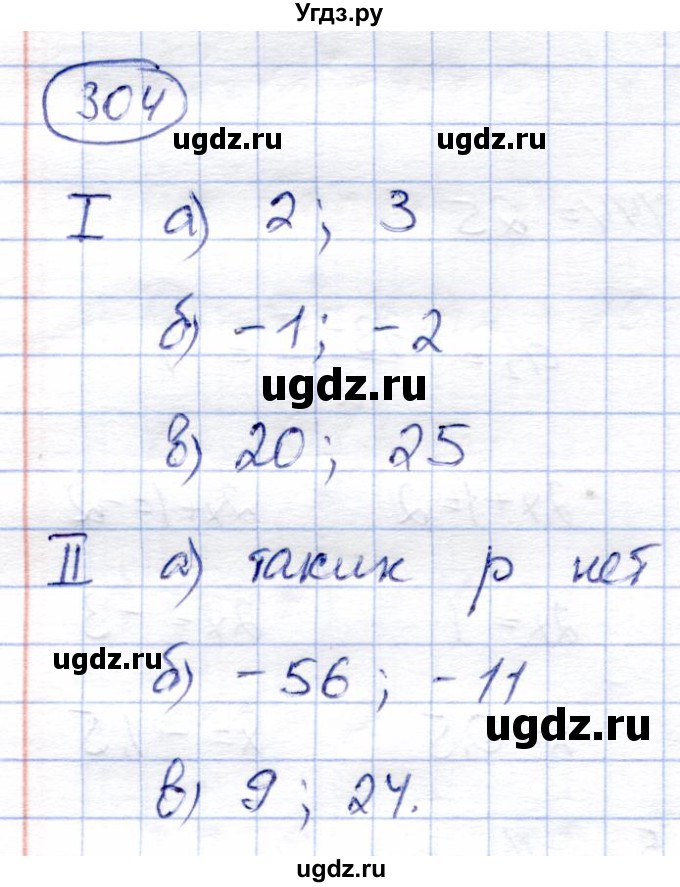 Угдз.ру
304
ugdz.ru ugdz.ru
I а) 2; 3
б) -1; -2
ugdz.ru
в) 20; 25
II а) таких p нет
ugdz.ru
б) -56; -11
ugdz.ru
в) 9; 24.
ugdz.ru